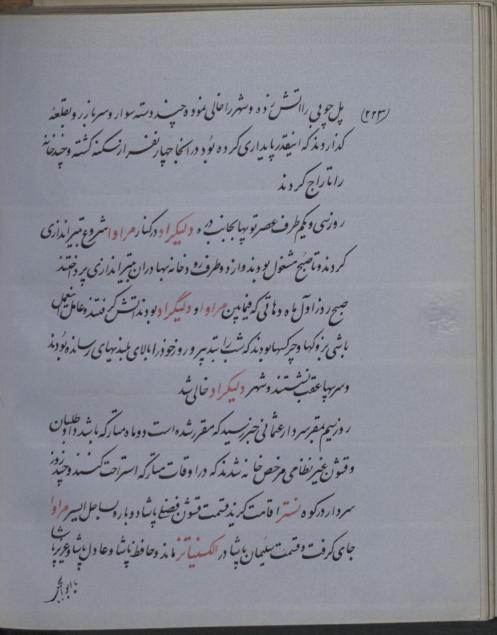 (۲۲۳) پل چوبی را آتش زده و شهر را خالی نموده چند دسته سوار و سرباز رو بقلعه
گذاردند که اینقدر پایداری کرده بود در آنجا چهار نفر از سکنه کشته و چند خانه
را تاراج کردند
روز سی و یکم طرف عصر توپها بجانب ده دلیگراد در کنار مراوا شروع بتیراندازی
کردند و تا صبح مشغول بودند و از دو طرف رودخانه بهادران بتیراندازی پرداختند
صبح روز اول ماه دهاتی که فیمابین مراوا و دلیگراد بودند آتش گرفتند و عامل اسمعیل
باشی بزوکها و چرکسها بودند که شب را بتدبیر و روز خود را بالای بلندیهای رسانده بودند
و سربها عقب نشستند و شهر دلیگراد خالی شد
روز سیم مقر سردار عثمانی خبر رسید که مقرر شده است دو ماه متارکه باشد داوطلبان
و قشون غیر نظامی مرخص خانه شدند که در اوقات متارکه استراحت کنند و چند روز
سردار در کوه نستر اقامت کرد قسمت قشون فضلی پاشا دوباره بساحل ایسر مراوا
جای گرفت و قسمت سلیمان پاشا در الکسیناتز ماند و حافظ پاشا و عادل پاشا و عزیز پاشا
با ابو